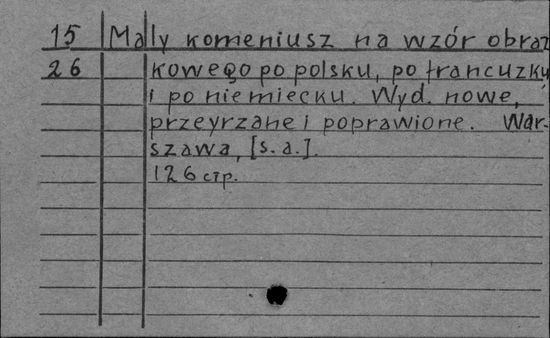 15 Mały komeniusz na wzór obraz
26 kowego po polsku, po francuzku
i po niemiecku. Wyd. nowe,
przeyrzane i poprawione. War-
szawa, [s.a.].
126 стр.